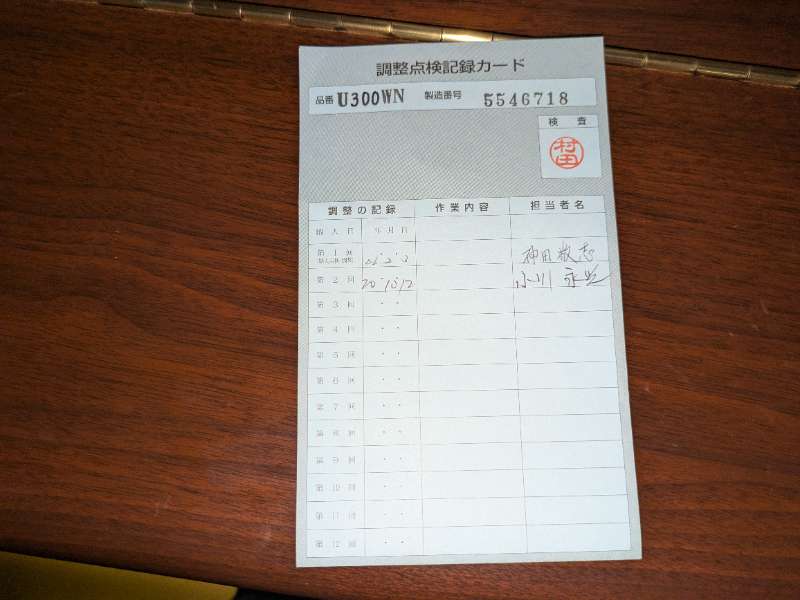 調整点検記録カード
品番 U300WN 製造番号 5546718
検査
村田
調整の記録 作業内容 担当者名
納入日 年月日
第1回 神田敬志
第2回 20・10・12 小川
第3回 ・・
第4回 ・・
第5回 ・・
第6回 ・・
第7回 ・・
第8回 ・・
第9回 ・・
第10回 ・・
第11回 ・・
第12回 ・・